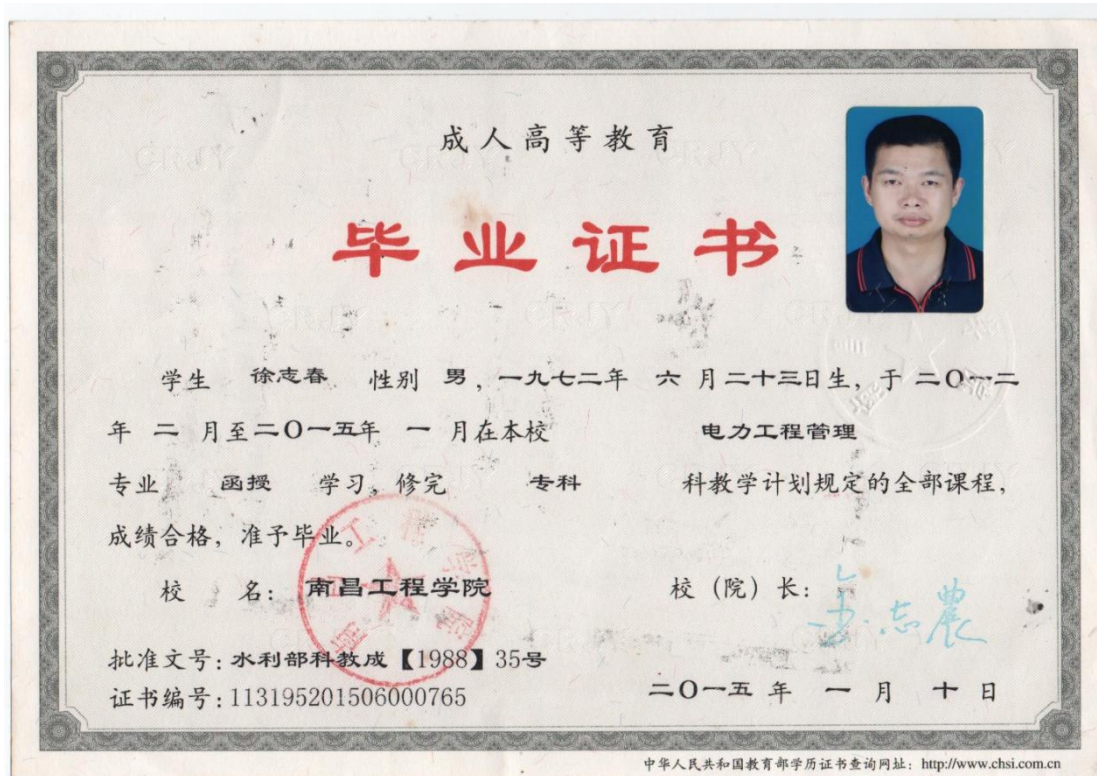 成人高等教育
毕业证书
学生 徐志春 性别 男，一九七二年 六 月二十三日生，于 二〇一二
年 二 月至二〇一五年 一 月在本校 电力工程管理
专业 函授 学习，修完 专科 科教学计划规定的全部课程，
成绩合格，准予毕业。
校 名：南昌工程学院 校（院）长：金志農
批准文号：水利部科教成【1988】35号
证书编号：113195201506000765 二〇一五 年 一 月 十 日
中华人民共和国教育部学历证书查询网址：http://www.chsi.com.cn